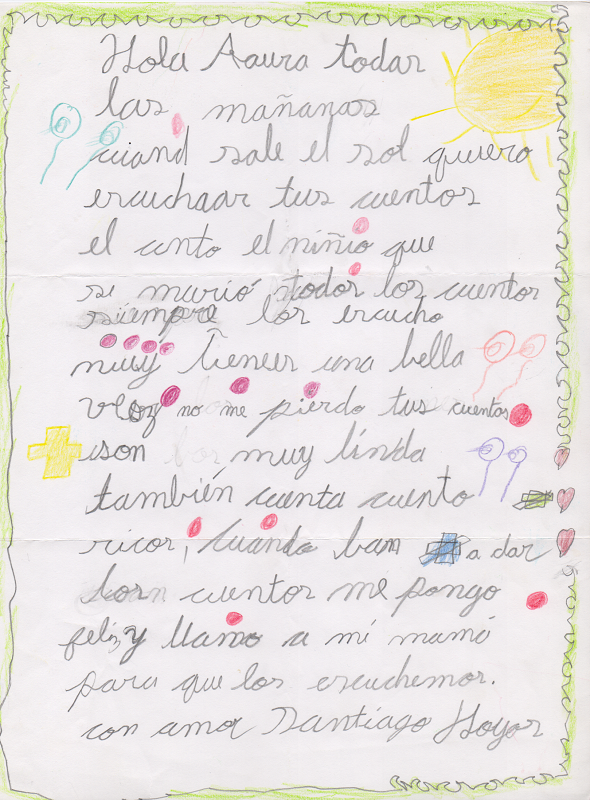 Hola Laura todas
las mañanas
cuand sale el sol quiero
escuchaar tus cuentos
el cunto el niñio que
se murió todos los cuentos
siempre los escucho
muy tienes una bella
voz no me pierdo tus cuentos
son muy linda
también cuenta cuento
ricos, cuando ban a dar
los cuentos me pongo
feliz y llamo a mi mamá
para que los escuchemos.
con amor Santiago Hoyos